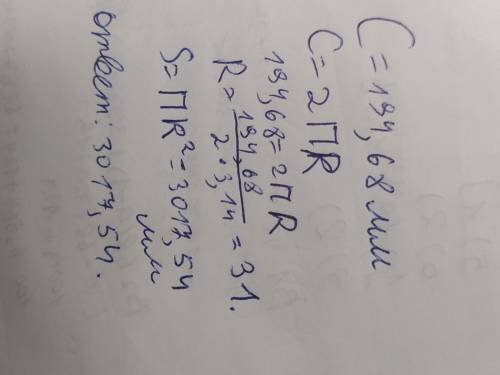 C = 194,68 мм
C = 2ПR
194,68 = 2ПR
R = 194,68 / 2·3,14 = 31.
S = ПR² = 3017,54 мм
ответ: 3017,54.